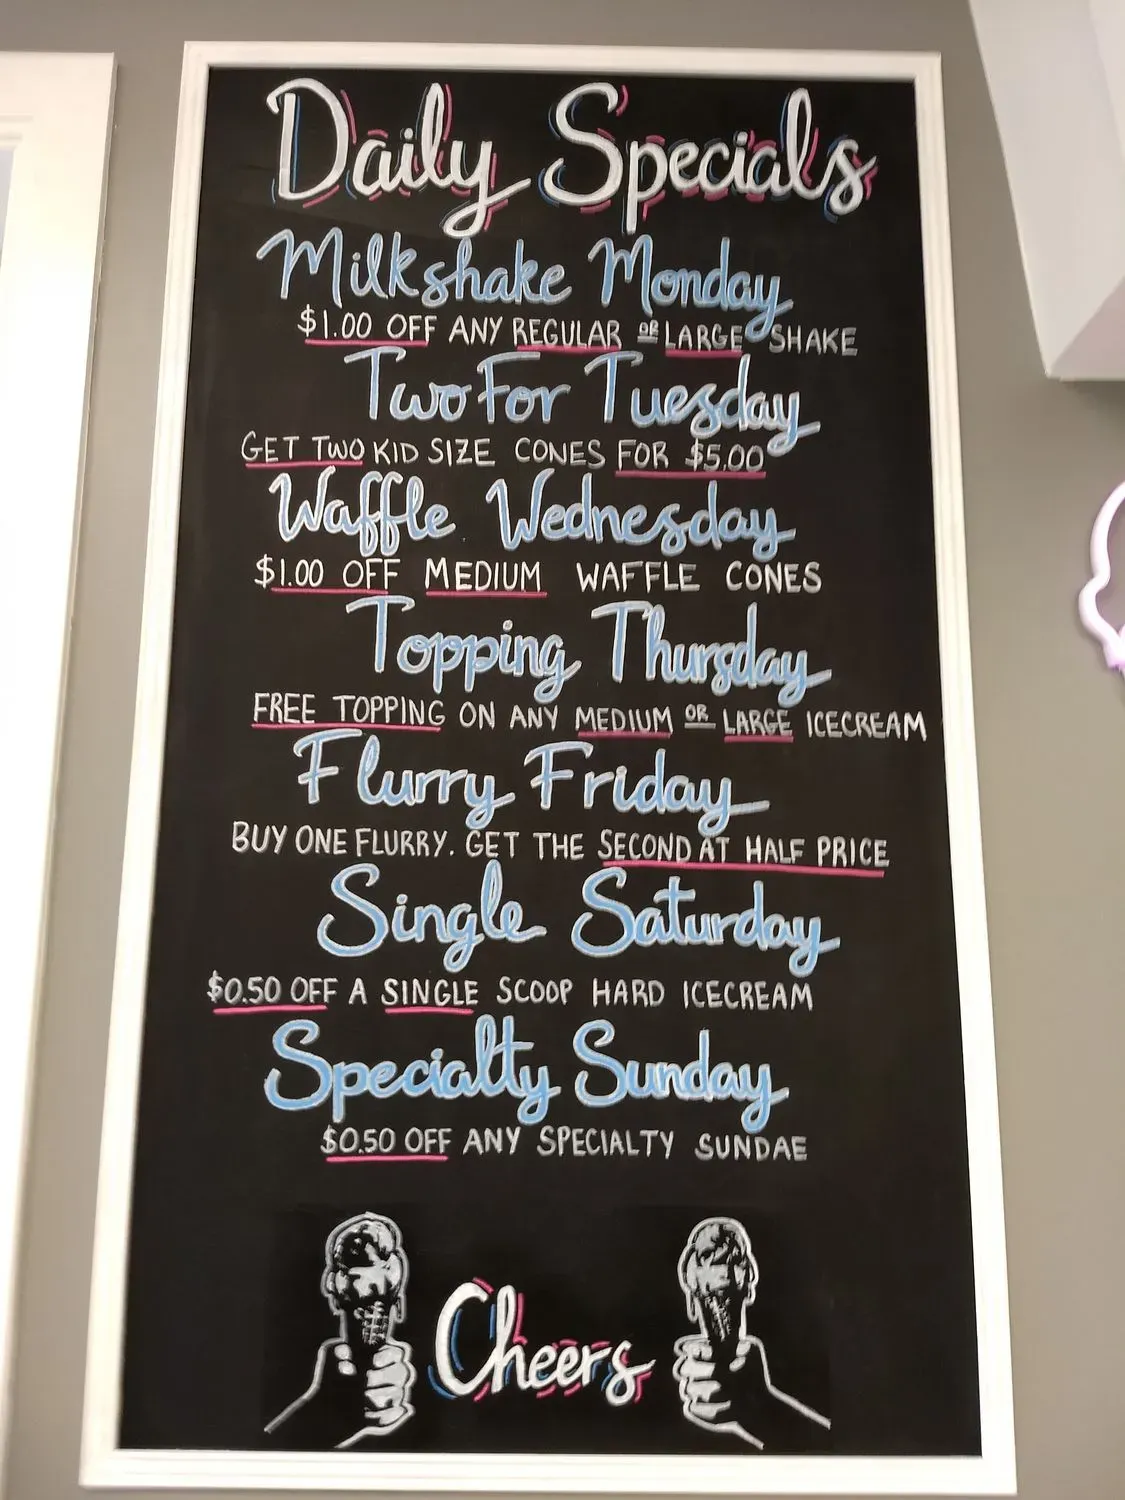 Daily Specials
Milkshake Monday
$1.00 OFF ANY REGULAR OR LARGE SHAKE
Two For Tuesday
GET TWO KID SIZE CONES FOR $5.00
Waffle Wednesday
$1.00 OFF MEDIUM WAFFLE CONES
Topping Thursday
FREE TOPPING ON ANY MEDIUM OR LARGE ICECREAM
Flurry Friday
BUY ONE FLURRY. GET THE SECOND AT HALF PRICE
Single Saturday
$0.50 OFF A SINGLE SCOOP HARD ICECREAM
Specialty Sunday
$0.50 OFF ANY SPECIALTY SUNDAE
Cheers